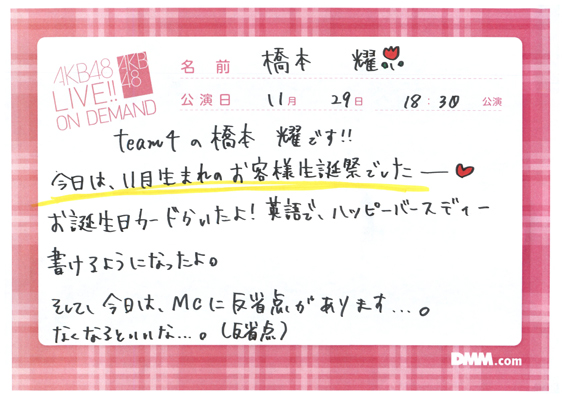 AKB48
LIVE!!
ON DEMAND
AKB
48
名前 橋本 耀
公演日 11月 29日 18:30 公演
team4の橋本 耀です!!
今日は、11月生まれのお客様生誕祭でしたー
お誕生日カードかいたよ!英語で、ハッピーバースディー
書けるようになったよ。
そして、今日は、MCに反省点があります...。
なくなるといいな...。(反省点)
DMM.com